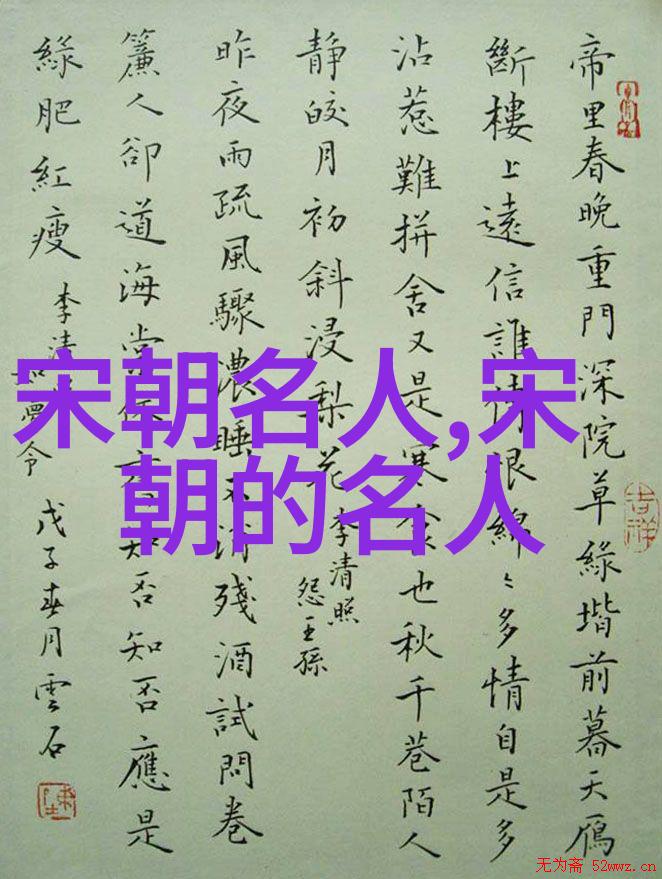 帝里春晚重門深院草綠堦前暮天鴈
斷樓上遠信誰傳恨綿〻多情自是多
沾惹難拼舍又是寒食也秋千巷陌人
靜皎月初斜浸梨花
李清照
怨王孫
昨夜雨疏風驟濃睡不消殘酒試問卷
簾人卻道海棠依舊知否知否應是
綠肥紅瘦
李清
如夢令
戊子春月雲石
吉祥
宋朝名人,宋
朝的名人
无为斋 52wwz.cn